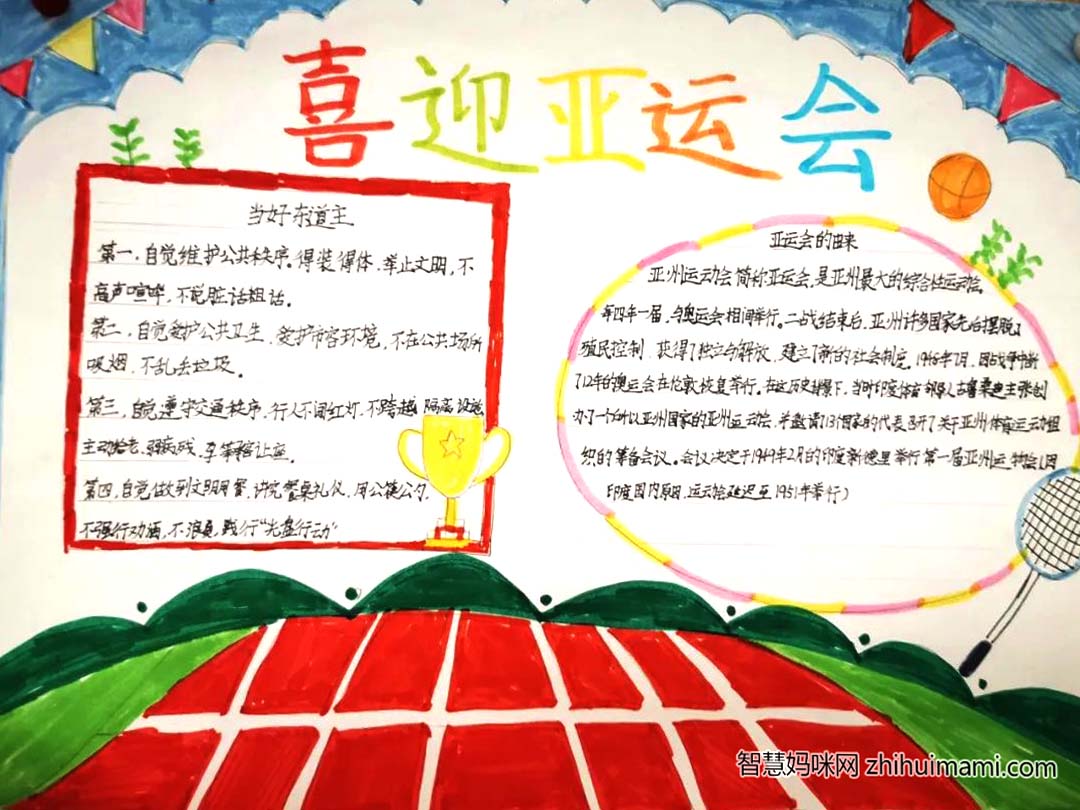 喜迎亚运会
当好东道主
第一，自觉维护公共秩序。得装得体，举止文明，不
高声喧哗，不说脏话粗话。
第二，自觉维护公共卫生，爱护市容环境，不在公共场所
吸烟，不乱丢垃圾。
第三，自觉遵守交通秩序，行人不闯红灯，不跨越隔离设施
主动给老、弱病残、孕等乘客让座。
第四，自觉做到文明用餐，讲究餐桌礼仪，用公筷公勺，
不强行劝酒，不浪费，践行"光盘行动"
亚运会的由来
亚洲运动会简称亚运会，是亚洲最大的综合性运动会。
每四年一届，与奥运会相间举行。二战结束后，亚洲许多国家先后摆脱了
殖民控制，获得了独立与解放，建立了新的社会制度。1946年7月，因战争中断
了12年的奥运会在伦敦恢复举行。在这历史背景下，当时印度体育领导人古鲁桑迪主张创
办了一个所以亚洲国家的亚洲运动会，并邀请了13个国家的代表召开了关于亚洲体育运动组
织的筹备会议。会议决定于1949年2月的印度新德里举行第一届亚洲运动会（因
印度国内原因，运动会延迟至1951年举行）
智慧妈咪网 zhihuimami.com